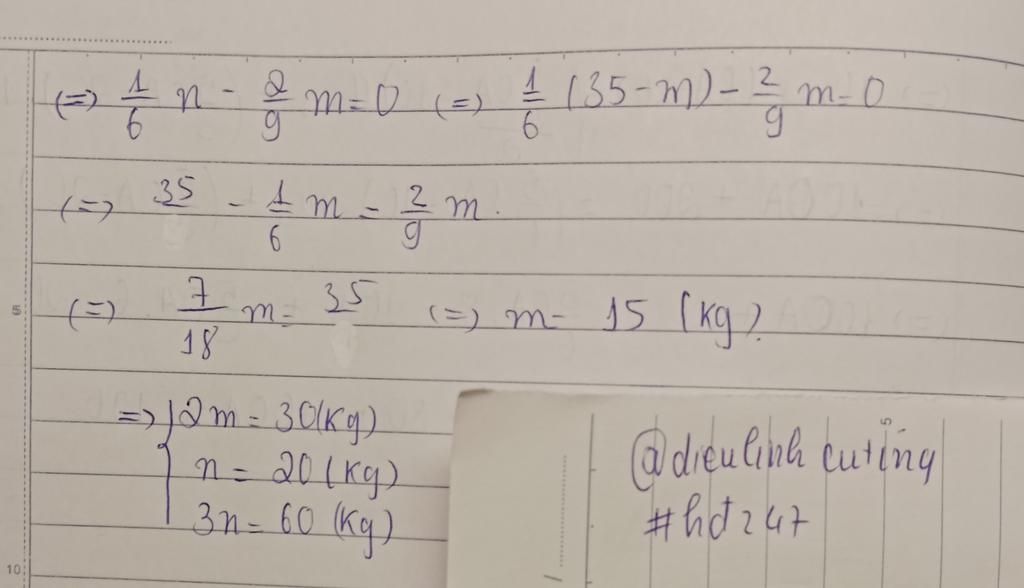 (=) 1/6 n - 2/9 m = 0 (=) 1/6 (35 - m) - 2/9 m = 0
(=) 35 - 1/6 m = 2/9 m.
(=) 7/18 m = 35 (=) m = 15 (kg).
=> { 2m = 30 (kg)
n = 20 (kg)
3n = 60 (kg)
@dieulinh cuting
#hđ247
5
10
5